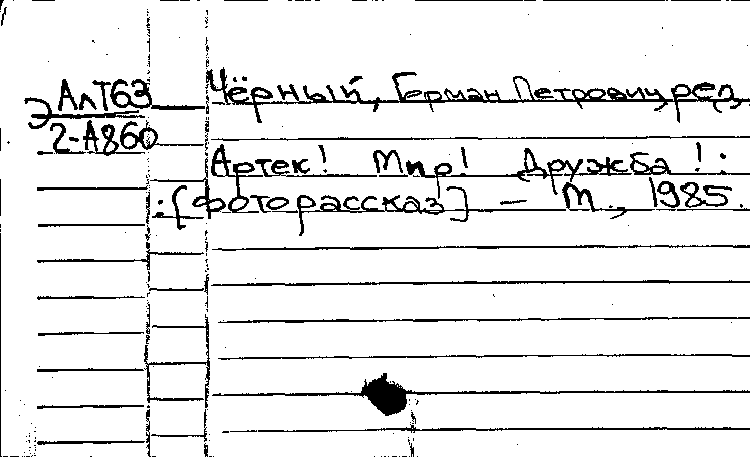 Э АлТ63
2-А860
Чёрный, Герман Петрович, ред.
Артек! Мир! Дружба!:
:[фоторассказ] – М., 1985.